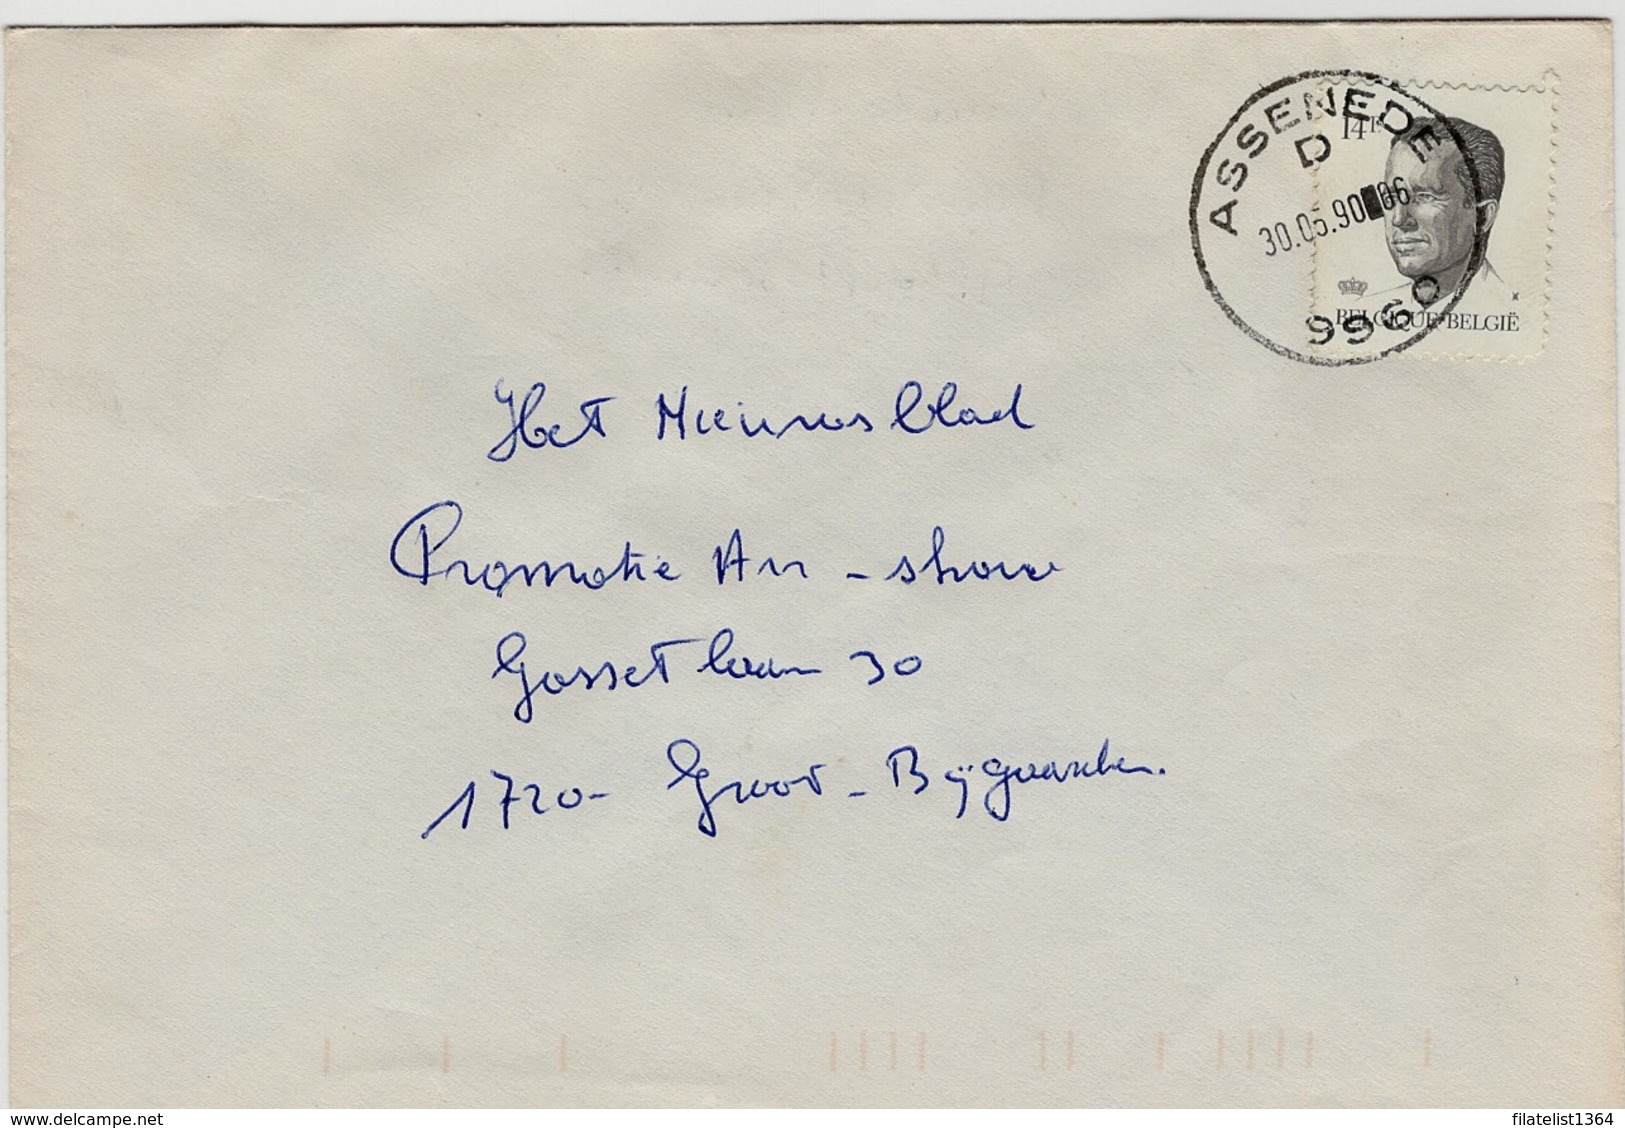 ASSENEDE
D
14F
30.05.90 06
9960
BELGIQUE-BELGIË
Het Nieuwsblad
Promotie Air-show
Gossetlaan 30
1720- Groot-Bijgaarden.
www.delcampe.net
filatelist1364